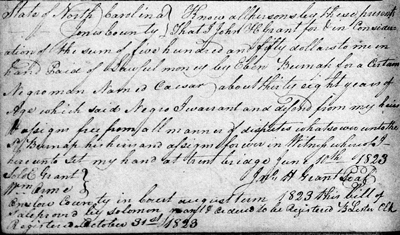 State of North Carolina } Know all persons by these presents
Jones County } That I John H Grant for & in Consider
ation of the sum of five hundred and fifty dollars to me in
hand Paid of lawful money by Eben Burnap for a Certain
Negroman Named Caesar about thirty eight years of
Age which said Negro I warrant and defend from my heirs
& assigns free from all manner of disputes whatsoever unto the
Sd Burnap his heirs and assigns for ever in Witness whereof I
hereunto set my hand at trent bridge June 10th 1823
Sold Grant } John H Grant Seal
Wm
Onslow County in court august term 1823 this bill of
Sale proved by Solomon Grant & ordered to be Registered Clk
Registered October 31st 1823